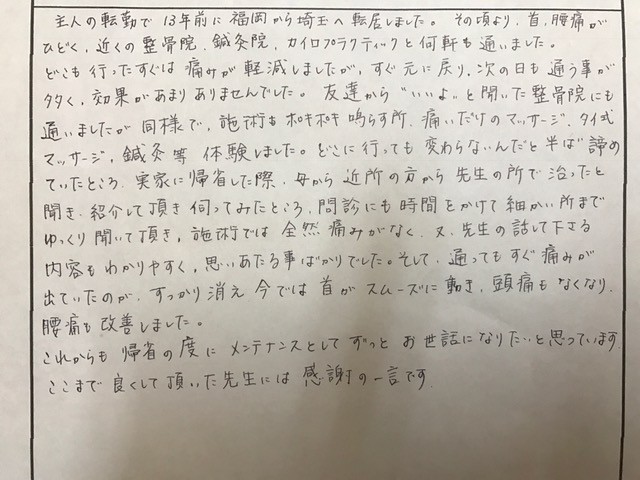 主人の転勤で13年前に福岡から埼玉へ転居しました。その頃より、首、腰痛が
ひどく、近くの整骨院、鍼灸院、カイロプラティックと何軒も通いました。
どこも行ったすぐは痛みが軽減しましたが、すぐ元に戻り、次の日も通う事が
多く、効果があまりありませんでした。友達から"いいよ"と聞いた整骨院にも
通いましたが同様で、施術もポキポキ鳴らす所、痛いだけのマッサージ、タイ式
マッサージ、鍼灸等体験しました。どこに行っても変わらないんだと半ば諦め
ていたところ、実家に帰省した際、母から近所の方から先生の所で治ったと
聞き、紹介して頂き伺ってみたところ、問診にも時間をかけて細かい所まで
ゆっくり聞いて頂き、施術では全然痛みがなく、又、先生の話して下さる
内容もわかりやすく、思いあたる事ばかりでした。そして、通ってもすぐ痛みが
出ていたのが、すっかり消え今では首がスムーズに動き、頭痛もなくなり、
腰痛も改善しました。
これからも帰省の度にメンテナンスとしてずっとお世話になりたいと思っています。
ここまで良くして頂いた先生には感謝の一言です